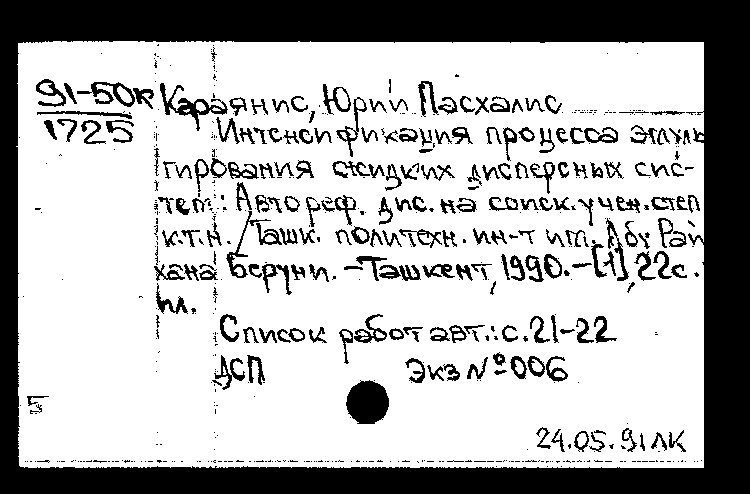 91-50к Караянис, Юрий Пасхалис
1725
Интенсификация процесса эмуль
гирования жидких дисперсных сис-
тем: Автореф. дис. на соиск. учен. степ
к.т.н. / Ташк. политехн. ин-т им. Абу Рай
хана Беруни. - Ташкент, 1990. - [1], 22 с.
ил.
Список работ авт.: с. 21-22
ДСП Экз № 006
5
24.05.91 ЛК